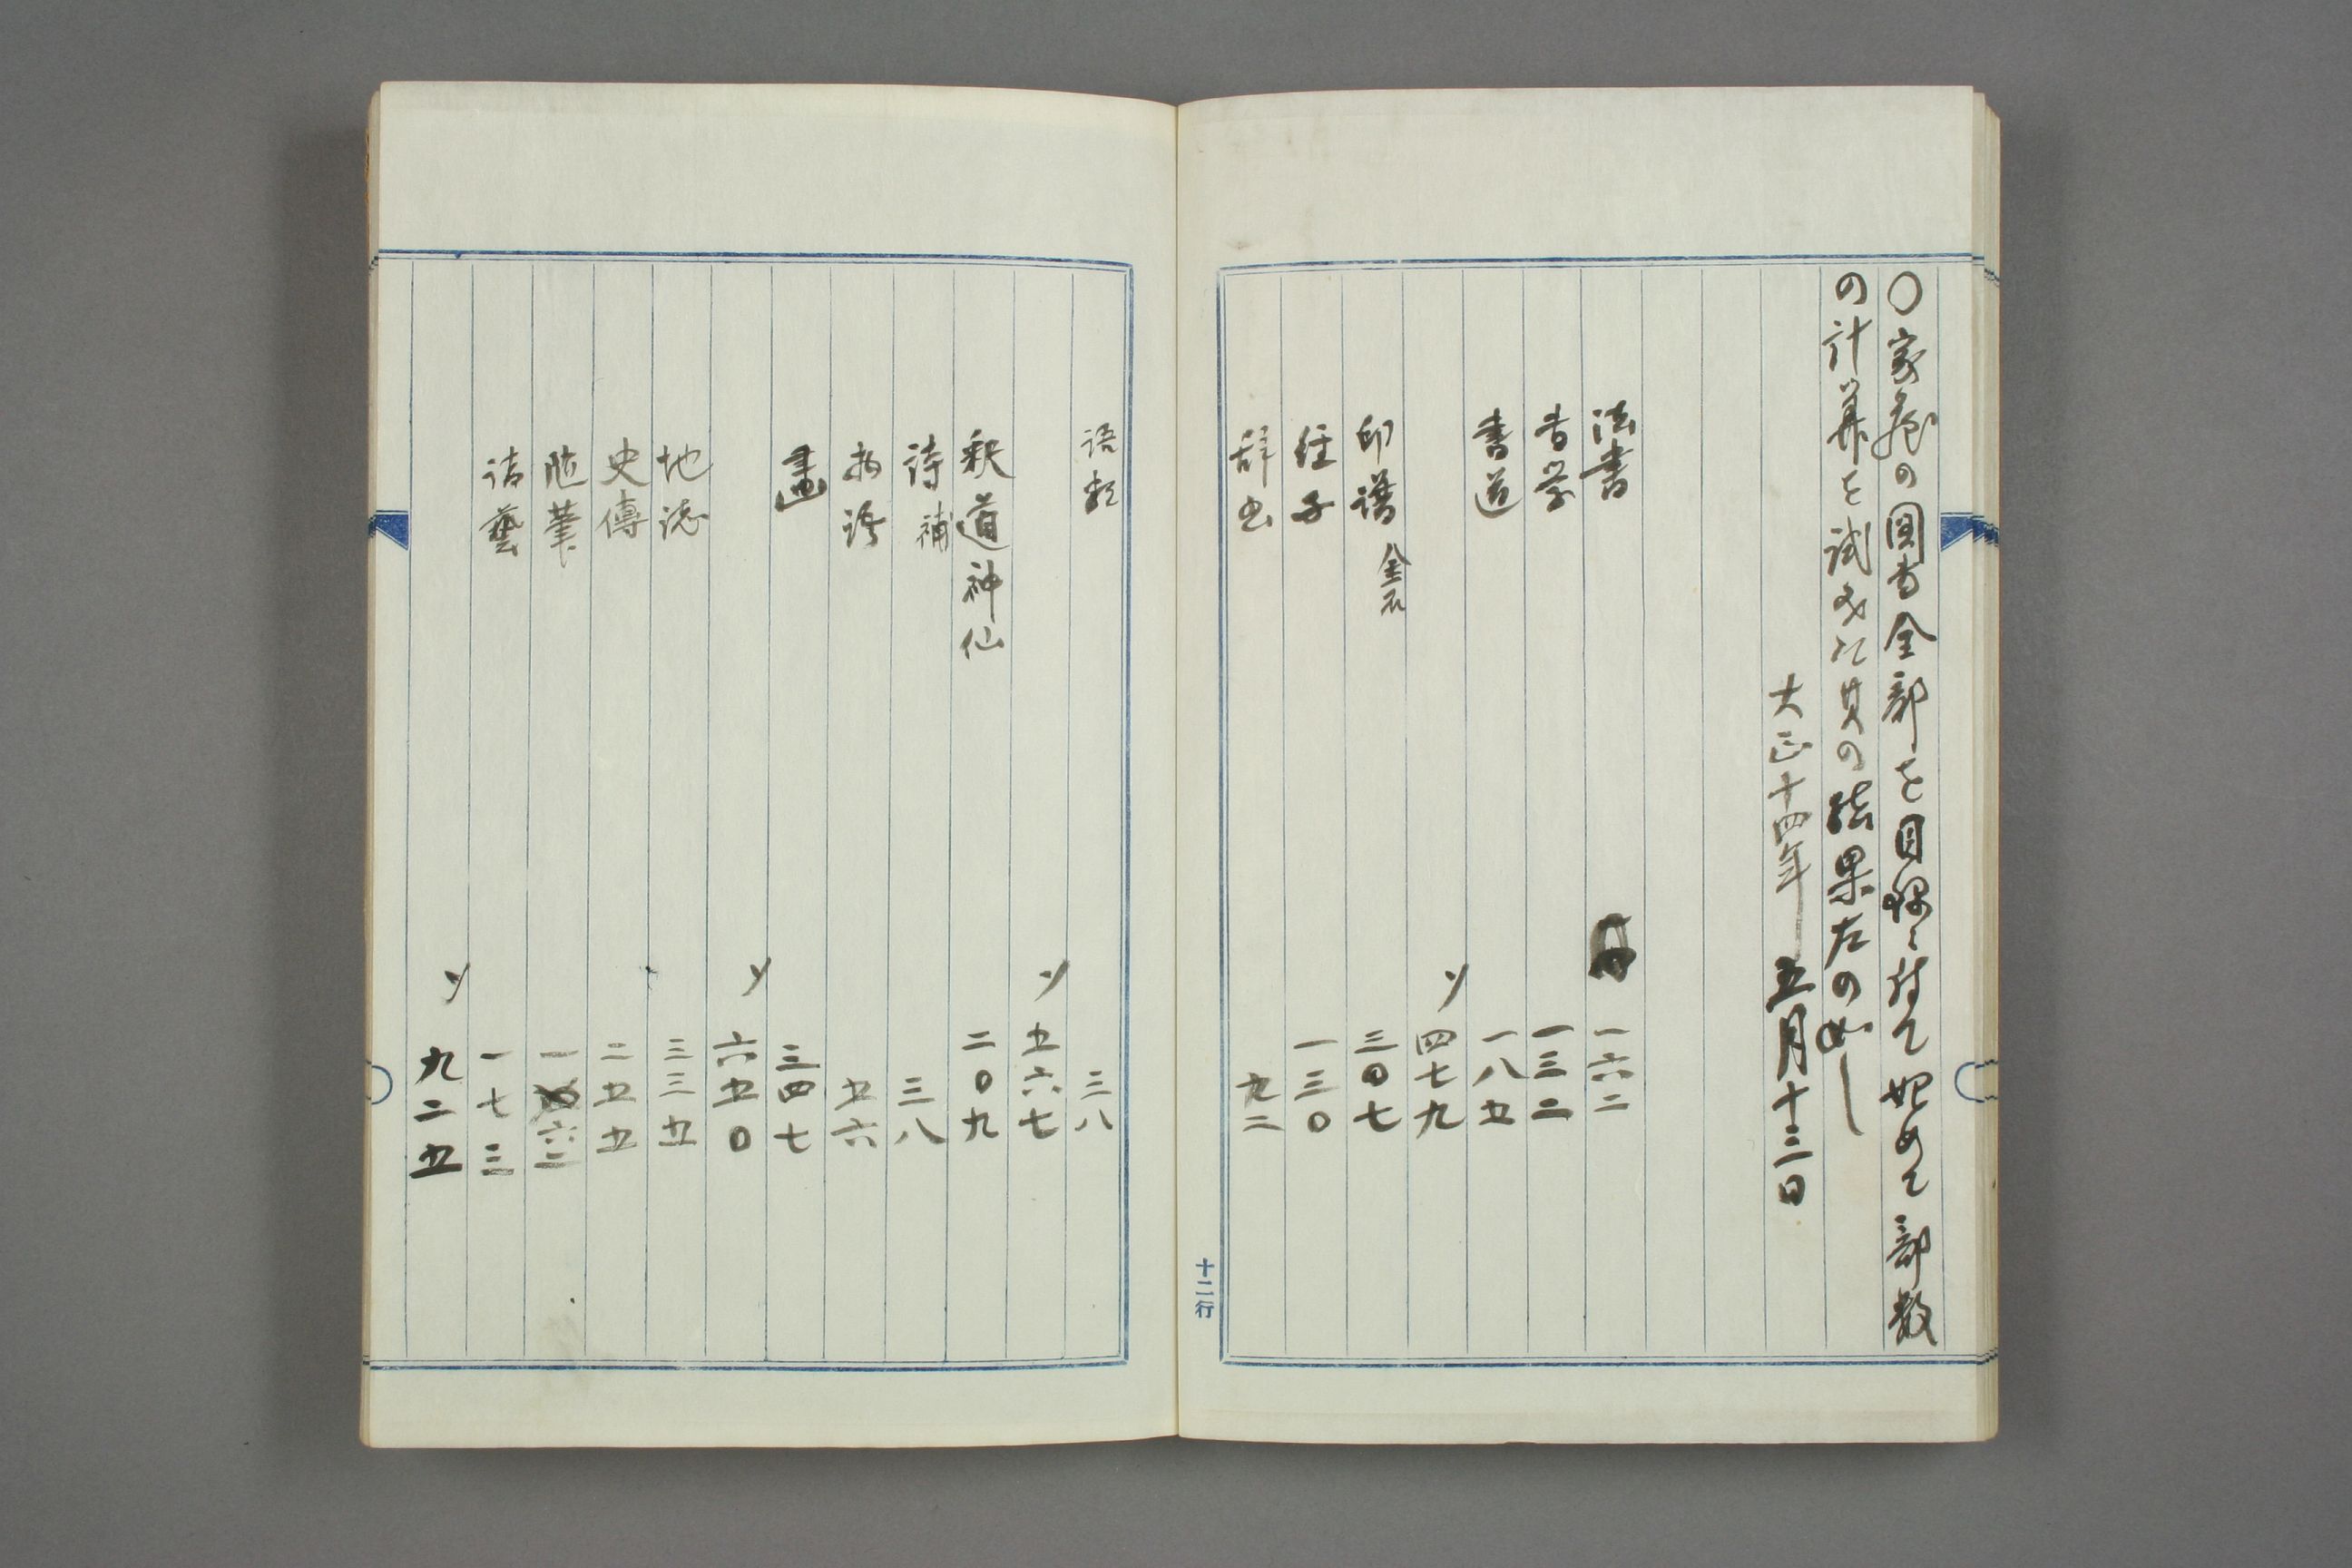 〇家蔵の圖書全部を目録に付て始めて部数
の計算を試みたに其の結果左の如し
大正十四年五月十三日
法書 一六二
書学 一三二
書道 一八五
〆四七九
印譜 金石 三〇七
経子 一三〇
辞書 九二
十二行
語類 三八
〆五六七
釈道神仙 二〇九
詩補 三八
物語 五六
畫 三四七
〆六五〇
地誌 三三五
史傳 二五五
随筆 一六二
諸藝 一七三
〆九二五